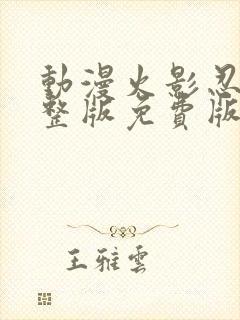 動漫火影忍
整版免費版
王雅雲